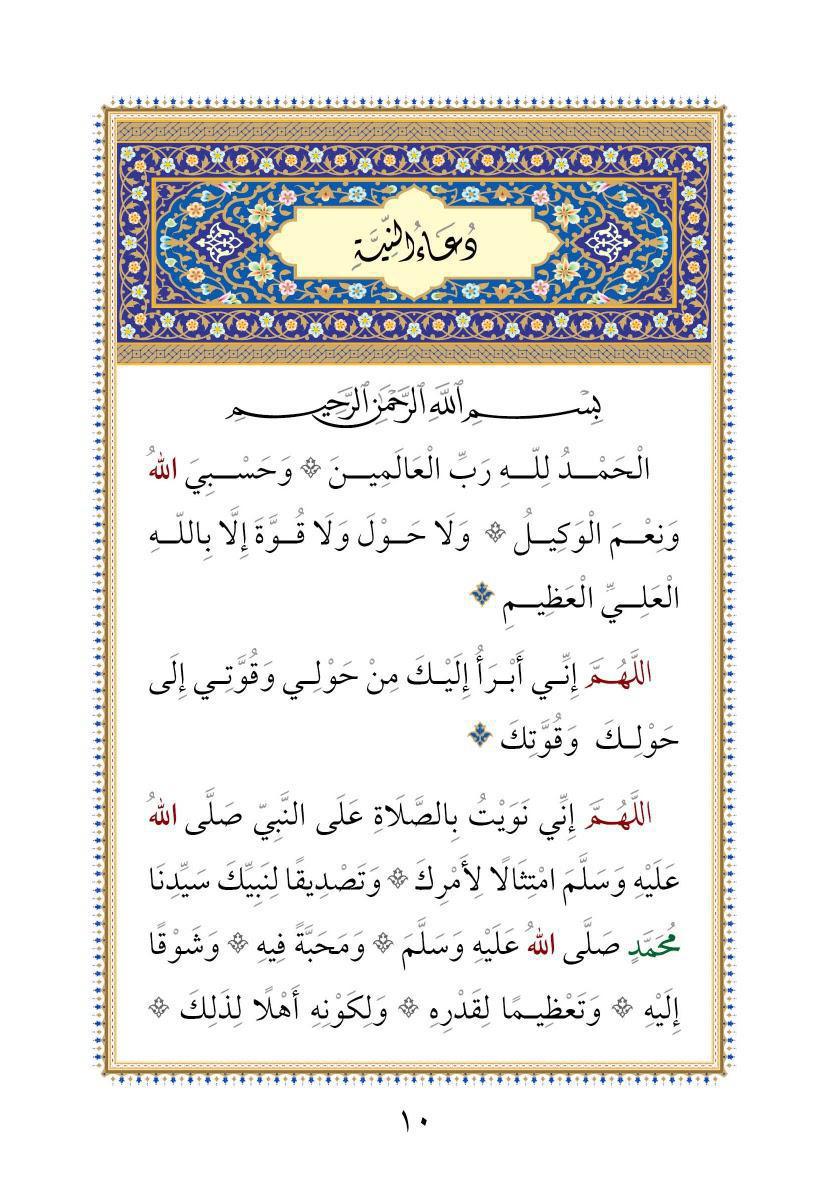 دُعَاءُ النِّيَّةِ
بِسْــــمِ ٱللَّهِ ٱلرَّحْمَٰنِ ٱلرَّحِيــــمِ
الْحَمْــدُ لِلّــهِ رَبِّ الْعَالَمِيــنَ ۞ وَحَسْــبِيَ اللهُ
وَنِعْــمَ الْوَكِيــلُ ۞ وَلَا حَــوْلَ وَلَا قُــوَّةَ إِلَّا بِاللّــهِ
الْعَلِــيِّ الْعَظِيــمِ ۞
اللَّهُــمَّ إِنِّــي أَبْــرَأُ إِلَيْــكَ مِنْ حَوْلِــي وَقُوَّتِــي إِلَى
حَوْلِــكَ وَقُوَّتِكَ ۞
اللَّهُــمَّ إِنِّي نَوَيْتُ بِالصَّلَاةِ عَلَى النَّبِيِّ صَلَّى اللهُ
عَلَيْهِ وَسَلَّمَ امْتِثَالًا لِأَمْرِكَ ۞ وَتَصْدِيقًا لِنَبِيِّكَ سَيِّدِنَا
مُحَمَّدٍ صَلَّى اللهُ عَلَيْهِ وَسَلَّمَ ۞ وَمَحَبَّةً فِيهِ ۞ وَشَوْقًا
إِلَيْهِ ۞ وَتَعْظِيــمًا لِقَدْرِهِ ۞ وَلِكَوْنِهِ أَهْلًا لِذَلِكَ ۞
١٠